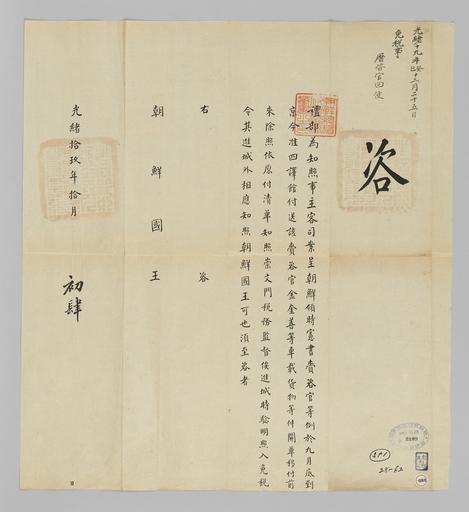 光緒十九年癸巳十二月二十五日
免稅事
曆咨官回便
咨
禮部為知照事主客司案呈朝鮮領時憲書賫咨官等例於九月底到
京今准四譯館付送該賫咨官金金善等車載貨物等件開單移付前
來除照依原付清單知照崇文門稅務監督俟進城時驗明照入免稅
令其進城外相應知照朝鮮國王可也須至咨者
右　咨
朝　鮮　國　王
光緒拾玖年拾月　初肆　日
25-62